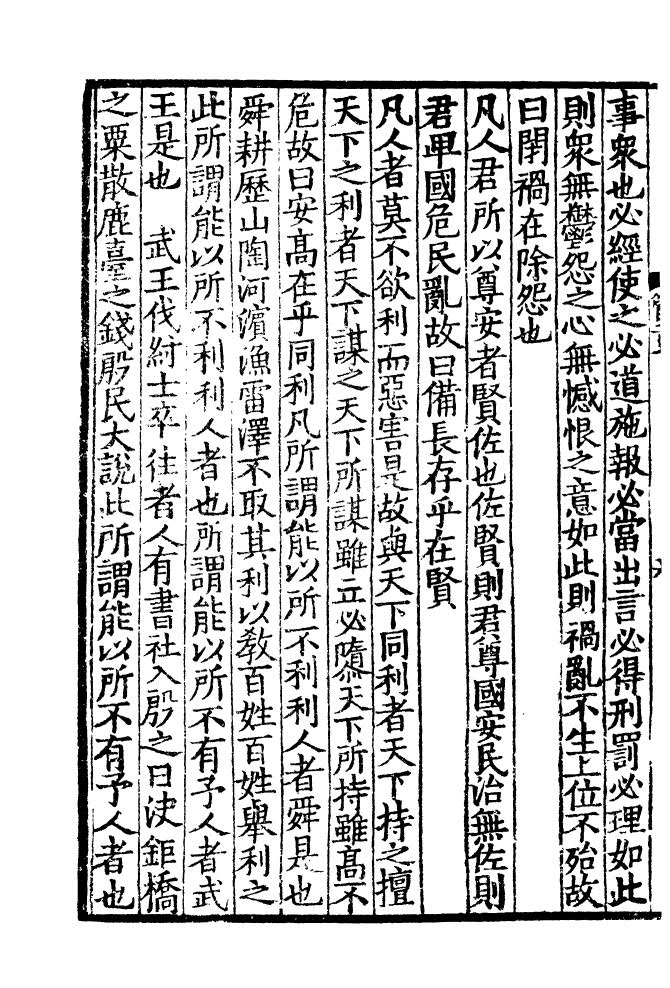 事衆也必經使之必道施報必當出言必得刑罰必理如此
則衆無鬱怨之心無憾恨之意如此則禍亂不生上位不殆故
曰閉禍在除怨也
凡人君所以尊安者賢佐也佐賢則君尊國安民治無佐則
君卑國危民亂故曰備長存乎在賢
凡人者莫不欲利而惡害是故與天下同利者天下持之擅
天下之利者天下謀之天下所謀雖立必隳天下所持雖髙不
危故曰安髙在乎同利凡所謂能以所不利利人者舜是也
舜耕歷山陶河濵漁雷澤不取其利以教百姓百姓舉利之
此所謂能以所不利利人者也所謂能以所不有予人者武
王是也　武王伐紂士卒往者人有書社入殷之日決鉅橋
之粟散鹿臺之錢殷民大說此所謂能以所不有予人者也